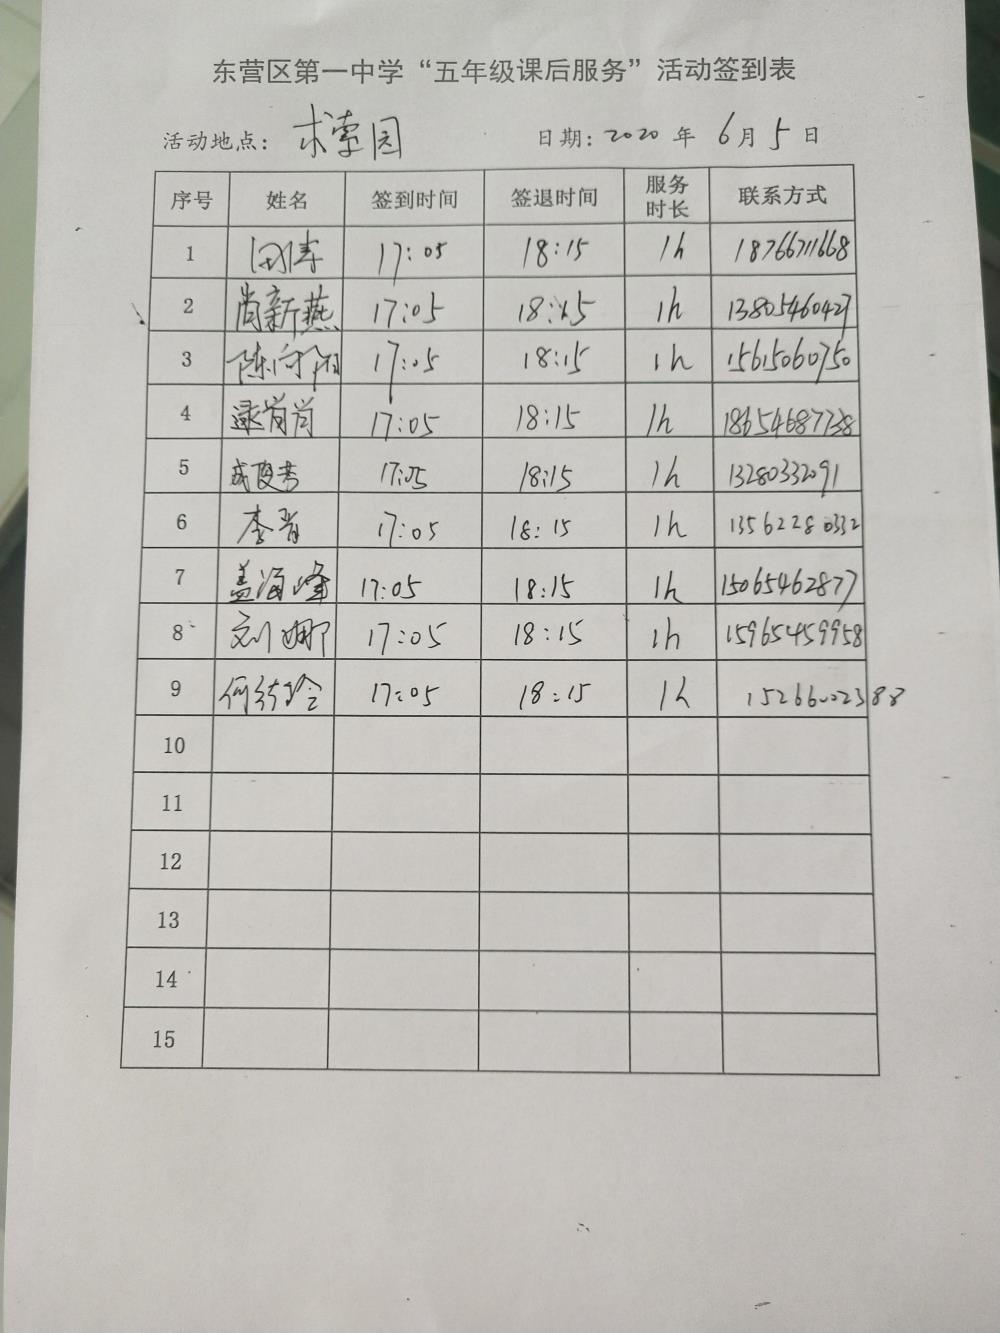 东营区第一中学“五年级课后服务”活动签到表
活动地点: 求索园 日期: 2020 年 6 月 5 日
序号 姓名 签到时间 签退时间 服务时长 联系方式
1 17:05 18:15 1h 18766711668
2 尚新燕 17:05 18:15 1h 13805460427
3 陈向阳 17:05 18:15 1h 15615060750
4 逯肖肖 17:05 18:15 1h 18654687738
5 成俊芳 17:05 18:15 1h 13280332091
6 李霄 17:05 18:15 1h 13562280332
7 盖海峰 17:05 18:15 1h 15065462877
8 刘娜 17:05 18:15 1h 15965459958
9 17:05 18:15 1h 15266002388
10
11
12
13
14
15